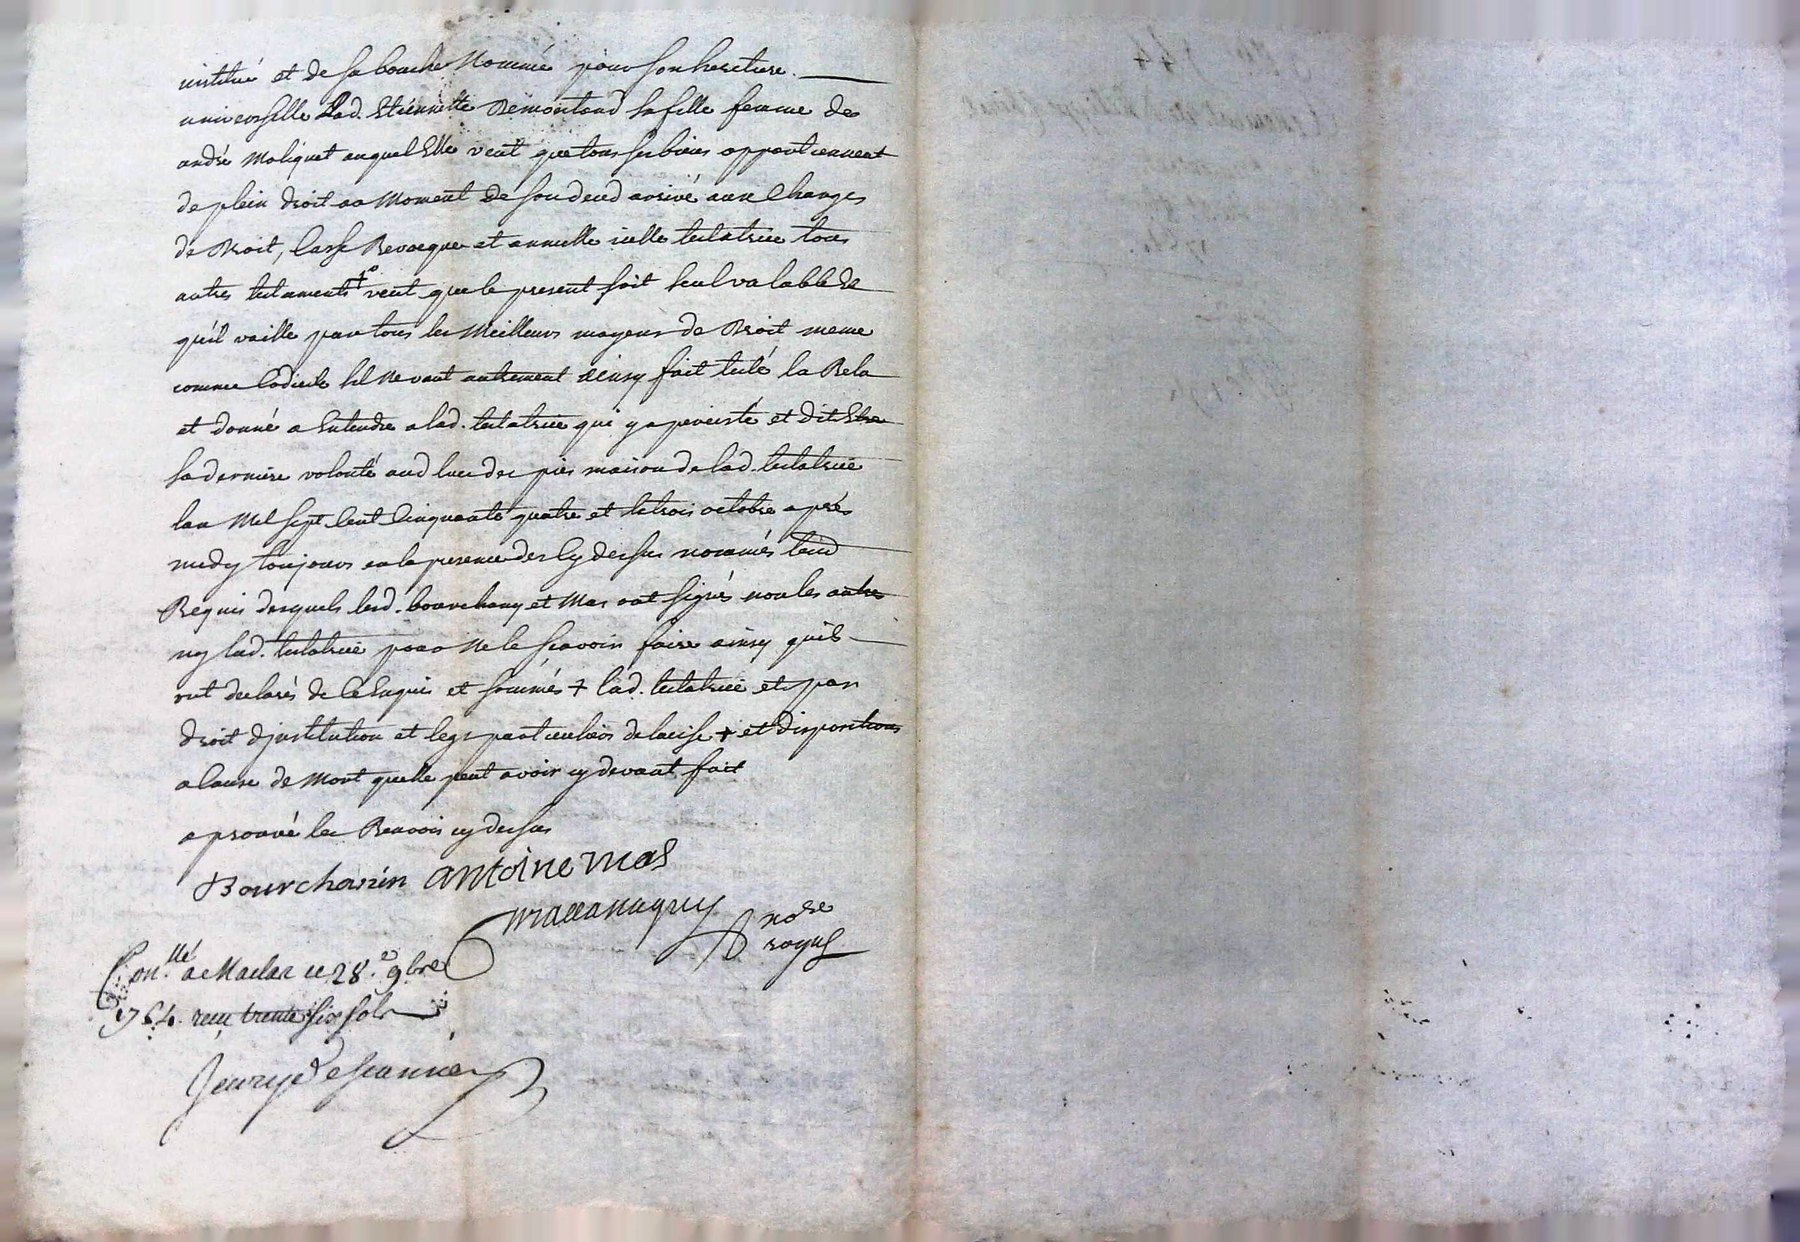 institué et de sa bouche Nommé pour son heretiere
universselle Lad. Etiennette Remontand sa fille femme de
andré Moliquet auquel Elle veut que tous ses biens appartiennent
de plein droit au Moment de son deced arrivé aux Charges
de Droit, Casse Revocque et annulle icelle testatrice tous
autres testaments + veut que le present soit seul valable &
qu'il vaille par tous les Meilleurs moyens de Droit meme
comme Codicile sil ne vaut autrement ainsy fait testé la Relu
et donné a Entendre a lad. testatrice qui y a perciste et dit Etre
sa derniere volonté aud lieu des pies maison de lad. testatrice
lan Mil sept Cent Cinquante quatre et le trois octobre apres
midy toujours en la presence des Cy dessus nommés temd
Requis desquels lesd. bourchany et Mas ont signés non les autres
ny lad. testatrice pour Ne le scavoir faire ainsy quils
ont declarés de ce Enquis et sommés + lad. testatrice et par
droit d'institution et legs particuliers delaisse + et dispositions
a Cause de Mort quelle peut avoir cy devant fait
aprouvé le Renvois cy dessus
Bourchanin antoine mas
no.re
royal
Con.llé a Maclas ce 28.e 9bre
1754. recu trente six sols